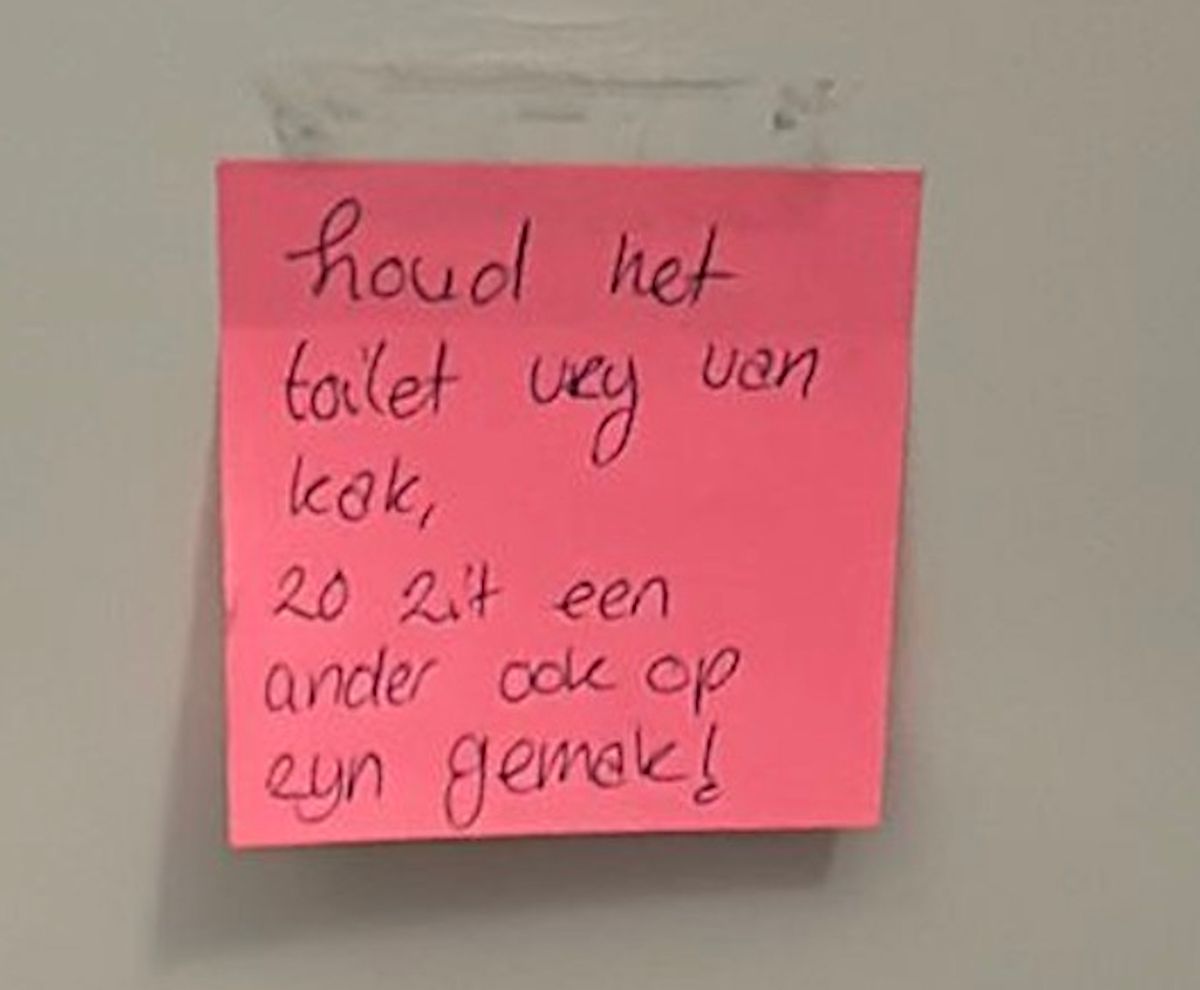 houd het
toilet vrij van
kak,
zo zit een
ander ook op
zijn gemak!